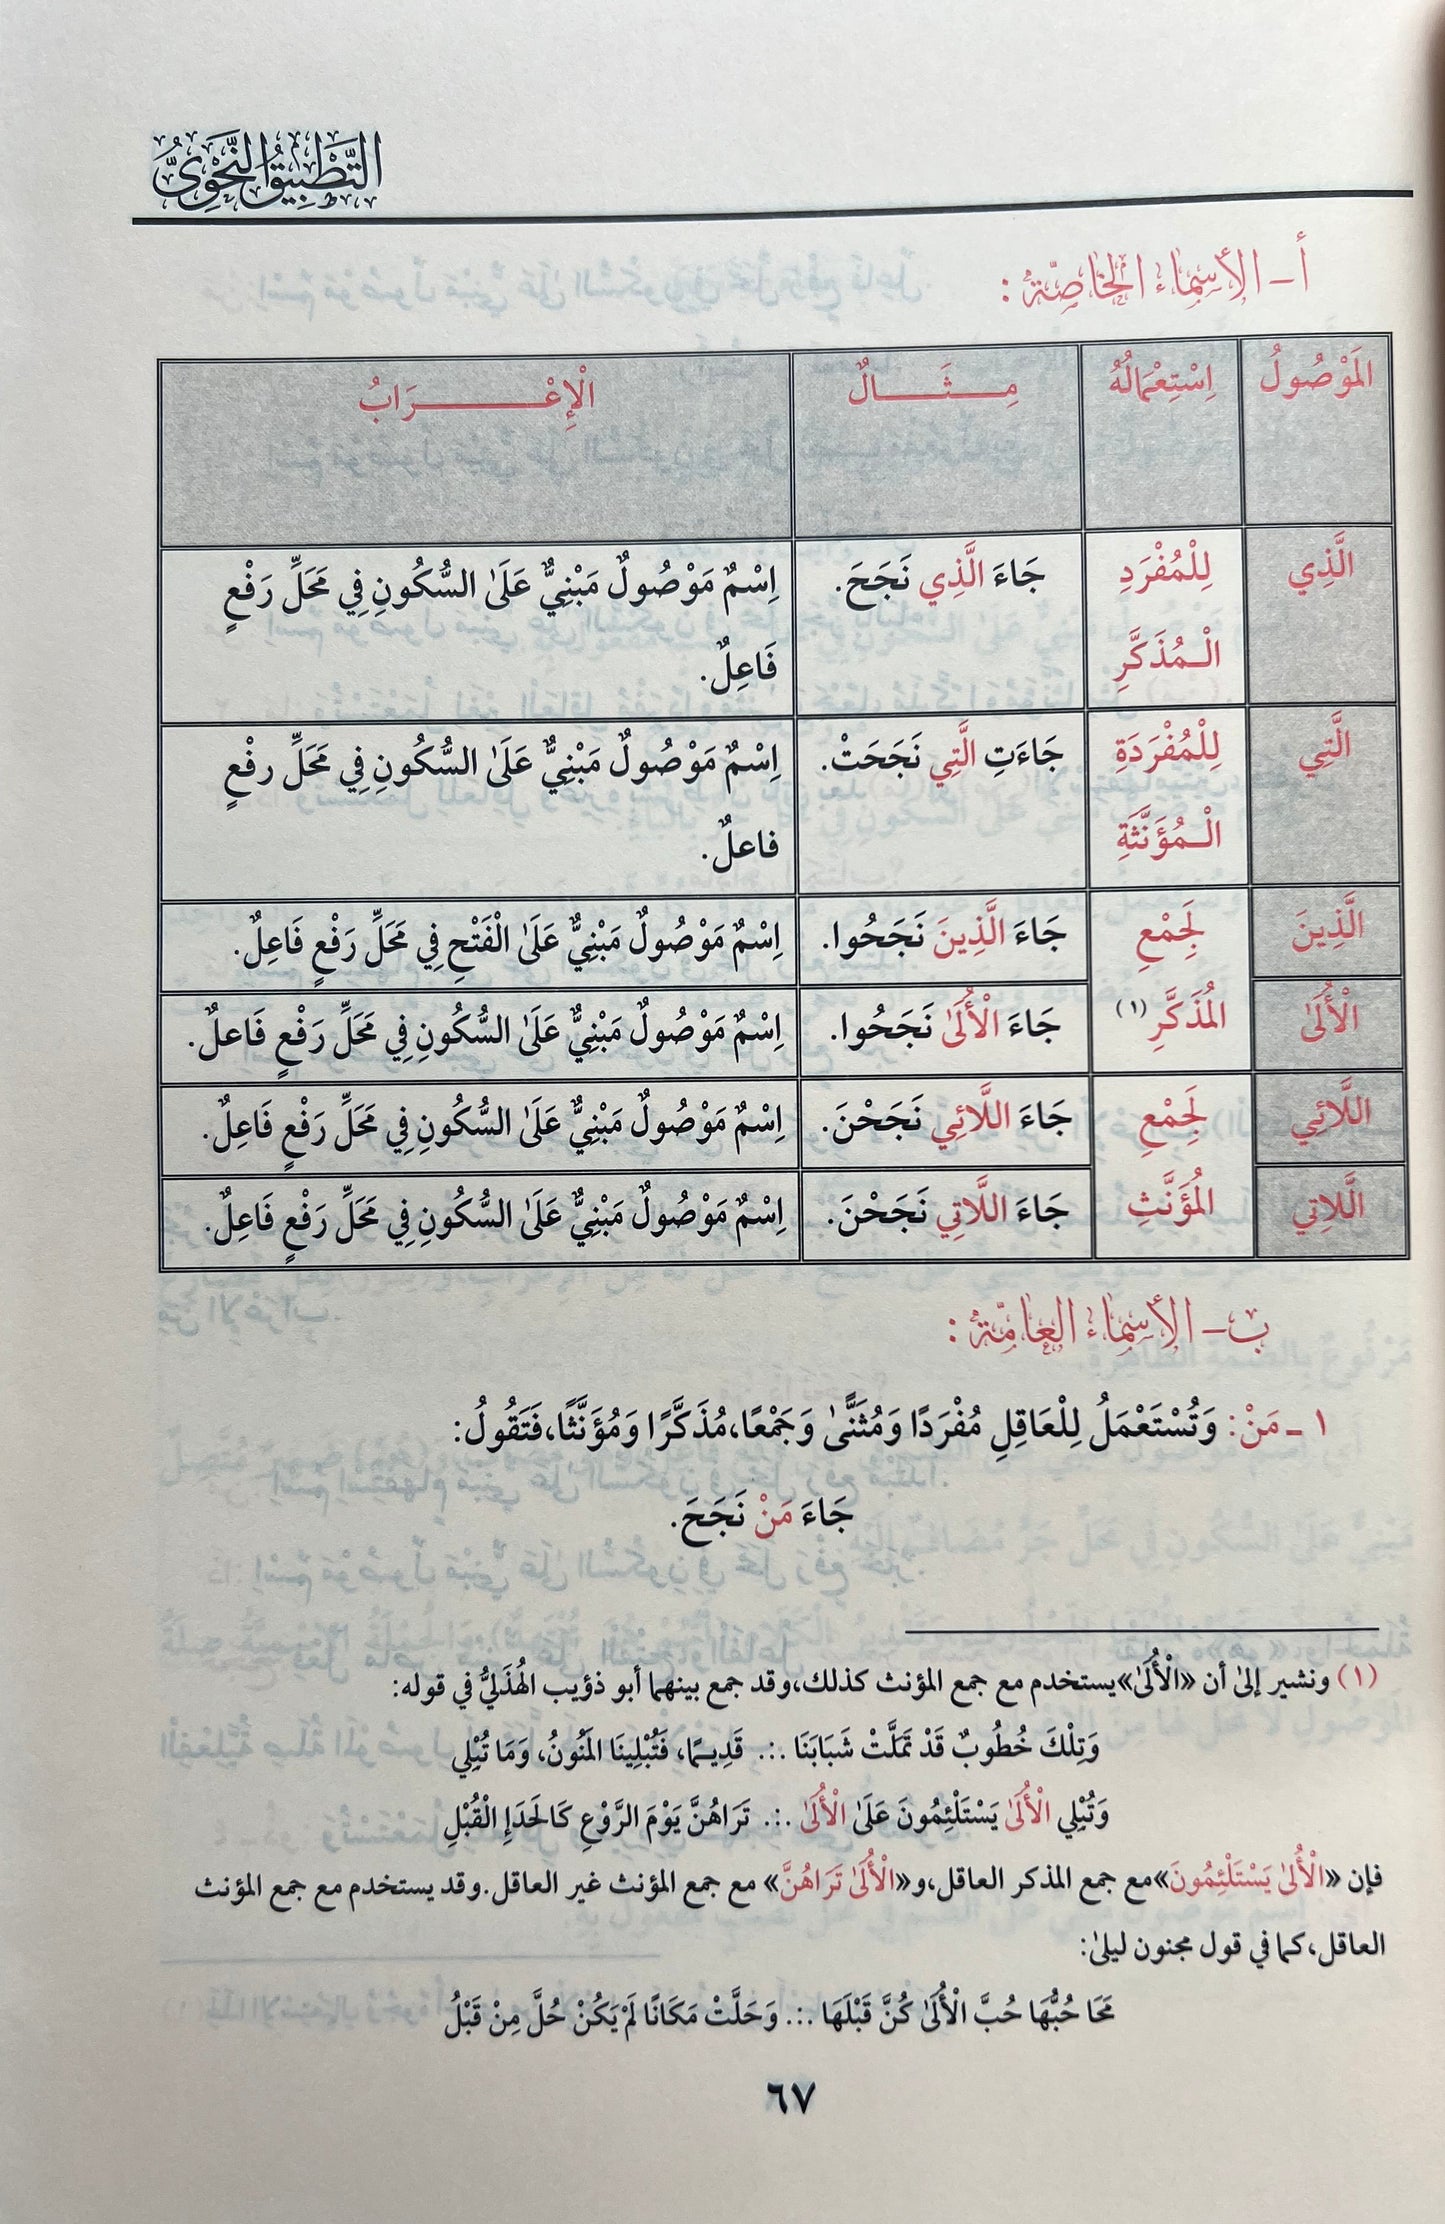 التَّطْبِيقُ النَّحْوِىُّ
أ- الأسماء الخاصّة :
الْمَوْصُولُ اِسْتِعْمَالُهُ مِـثَـالٌ الْإِعْـرَابُ
الَّذِي لِلْمُفْرَدِ جَاءَ الَّذِي نَجَحَ. اِسْمٌ مَوْصُولٌ مَبْنِيٌّ عَلَىٰ السُّكُونِ فِي مَحَلِّ رَفْعٍ
الْـمُذَكَّرِ فَاعِلٌ.
الَّتِي لِلْمُفْرَدَةِ جَاءَتِ الَّتِي نَجَحَتْ. اِسْمٌ مَوْصُولٌ مَبْنِيٌّ عَلَىٰ السُّكُونِ فِي مَحَلِّ رفْعٍ
الْـمُؤَنَّثَةِ فاعلٌ.
الَّذِينَ لِجَمْعِ جَاءَ الَّذِينَ نَجَحُوا. اِسْمٌ مَوْصُولٌ مَبْنِيٌّ عَلَىٰ الْفَتْحِ فِي مَحَلِّ رَفْعٍ فَاعِلٌ.
الْأُلَىٰ المُذَكَّرِ (١) جَاءَ الْأُلَىٰ نَجَحُوا. اِسْمٌ مَوْصُولٌ مَبْنِيٌّ عَلَىٰ السُّكُونِ فِي مَحَلِّ رَفْعٍ فَاعلٌ.
اللَّائِي لِجَمْعِ جَاءَ اللَّائِي نَجَحْنَ. اِسْمٌ مَوْصُولٌ مَبْنِيٌّ عَلَىٰ السُّكُونِ فِي مَحَلِّ رَفْعٍ فَاعِلٌ.
الَّلاِتي المُؤَنَّثِ جَاءَ اللَّاتِي نَجَحْنَ. اِسْمٌ مَوْصُولٌ مَبْنِيٌّ عَلَىٰ السُّكُونِ فِي مَحَلِّ رَفْعٍ فَاعِلٌ.
ب- الأسماء العامّة :
١ ـ مَنْ: وَتُسْتَعْمَلُ لِلْعَاقِلِ مُفْرَدًا وَمُثَنًّىٰ وَجَمْعًا،مُذَكَّرًا وَمُؤَنَّثًا،فَتَقُولُ:
جَاءَ مَنْ نَجَحَ.
(١) ونشير إلىٰ أن «الْأُلَىٰ»يستخدم مع جمع المؤنث كذلك،وقد جمع بينهما أبو ذؤيب الهُذَلِيُّ في قوله:
وَتِلْكَ خُطُوبٌ قَدْ تَمَلَّتْ شَبَابَنَا .:. قَدِيـمًا، فَتُبْلِينَا المَنُونُ، وَمَا تُبْلِي
وَتُبْلِي الْأُلَىٰ يَسْتَلْئِمُونَ عَلَىٰ الْأُلَىٰ .:. تَرَاهُنَّ يَوْمَ الرَّوْعِ كَالحَدَإِ الْقُبْلِ
فإن «الْأُلىٰ يَسْتَلْئِمُونَ»مع جمع المذكر العاقل،و«الْأُلَىٰ تَرَاهُنَّ» مع جمع المؤنث غير العاقل.وقد يستخدم مع جمع المؤنث
العاقل،كما في قول مجنون ليلىٰ:
مَحَا حُبُّهَا حُبَّ الْأُلَىٰ كُنَّ قَبْلَهَا .:. وَحَلَّتْ مَكَانًا لَمْ يَكُنْ حُلَّ مِنْ قَبْلُ
٦٧